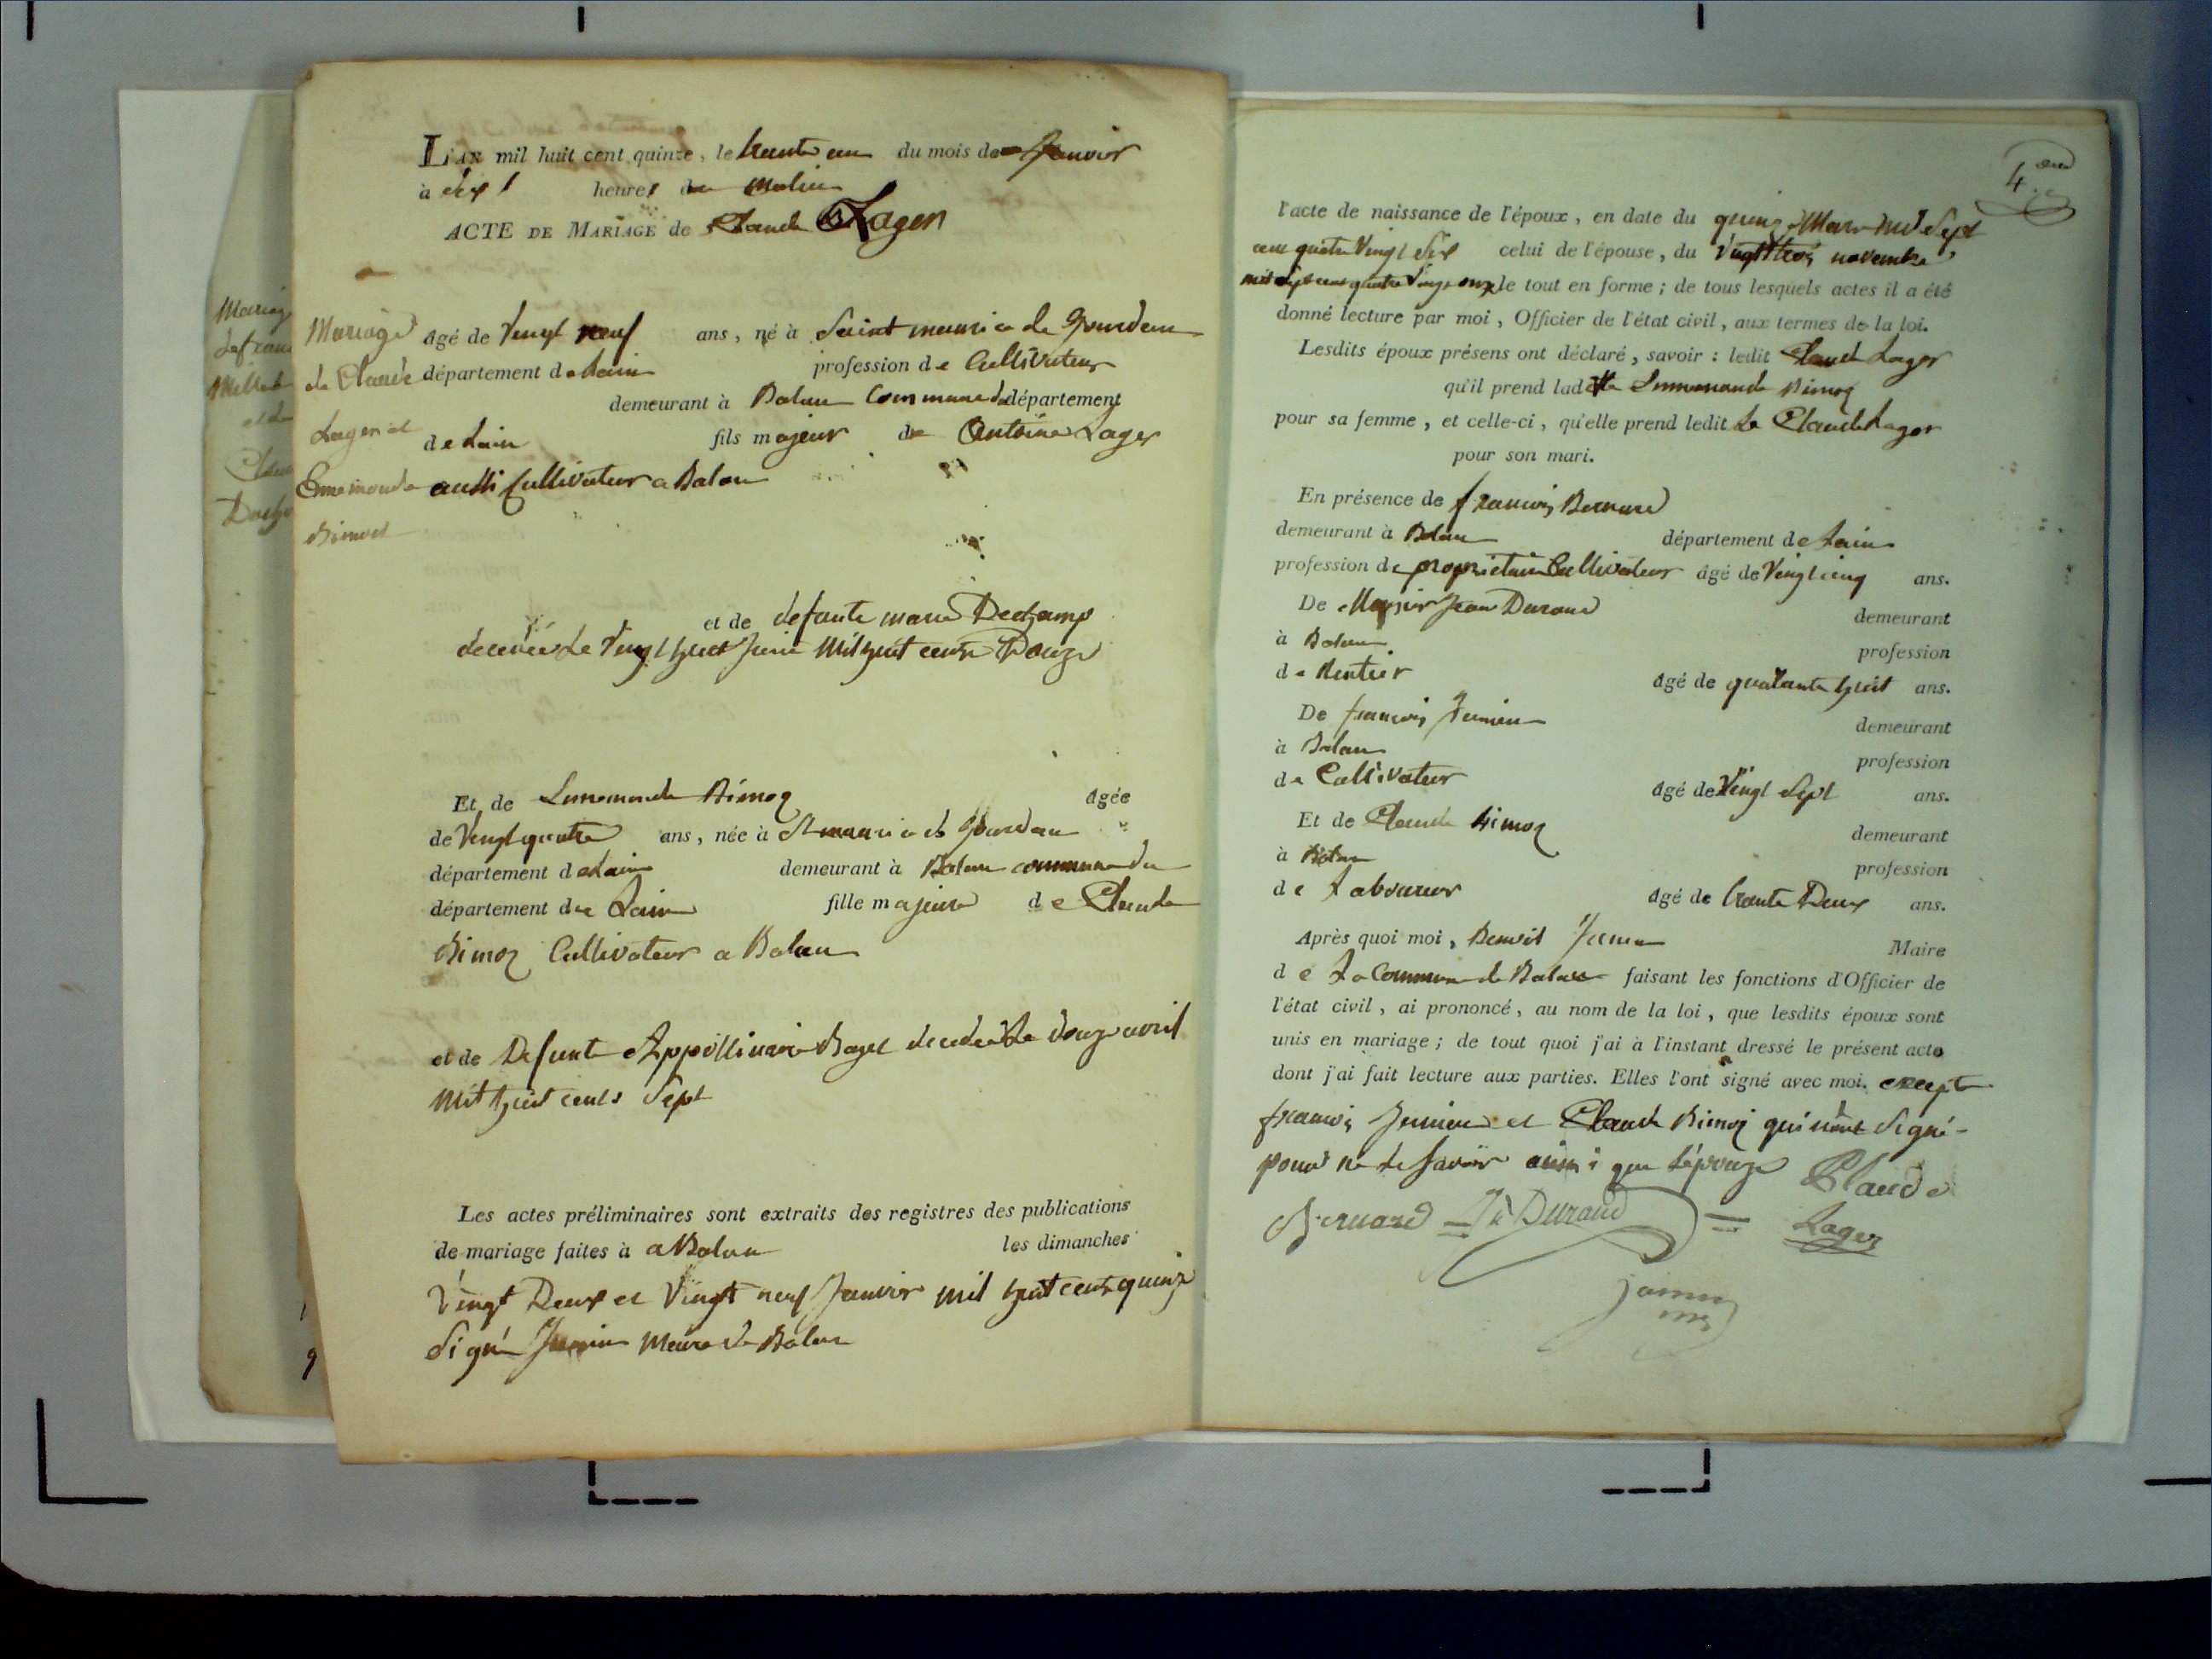 L'AN mil huit cent quinze, le trante un du mois de Janvier
à sept heures du matin
ACTE DE MARIAGE de Claude Lager
Mariage
de Claude
Lager et
Ennemonde
Bimoz
agé de vengt neuf ans, né à Saint maurice de Gourdan
département de Lain profession de Cultivateur
demeurant à Balan Commune du département
de Lain fils majeur de Antoine Lager
aussi Cultivateur a Balan
et de defunte marie Dechamp
décédée le vengt huit Juin mil huit cents Douze
Et de Ennemonde Bimoz agée
de vengt quatre ans, née à St maurice de Gourdan
département de Lain demeurant à Balan commune du
département de Lain fille majeure de Claude
Bimoz Cultivateur a Balan
et de Defunte Appollinaire décédée le douze avril
mil huit cents Sept
Les actes préliminaires sont extraits des registres des publications
de mariage faites à a Balan les dimanches
Vingt Deux et Vingt neuf Janvier mil huit cents quinze
Signé Jumin Maire de Balan
4
l'acte de naissance de l'époux, en date du quinze Mars mil Sept
cent quatre Vingt Six celui de l'épouse, du Vingt trois novembre,
mil Sept cent quatre Vingt onze le tout en forme; de tous lesquels actes il a été
donné lecture par moi, Officier de l'état civil, aux termes de la loi.
Lesdits époux présens ont déclaré, savoir: ledit Claude Lager
qu'il prend ladite Ennemonde Bimoz
pour sa femme, et celle-ci, qu'elle prend ledit Le Claude Lager
pour son mari.
En présence de françois Bernard
demeurant à Balan département de Lain
profession de proprietaire Cultivateur âgé de Vingt cinq ans.
De Jean Durand demeurant
à Balan profession
de Rentier âgé de quatante huit ans.
De françois Jumin demeurant
à Balan profession
de Cultivateur âgé de Vingt Sept ans.
Et de Claude Bimoz demeurant
à Balan profession
de Laboureur âgé de trante Deux ans.
Après quoi moi, Benoit Jumin Maire
de La Commune de Balan faisant les fonctions d'Officier de
l'état civil, ai prononcé, au nom de la loi, que lesdits époux sont
unis en mariage; de tout quoi j'ai à l'instant dressé le présent acte
dont j'ai fait lecture aux parties. Elles l'ont signé avec moi. excepte
françois Jumin et Claude Bimoz qui n'ont Signé
pour ne le Savoir ainsi que l'épouze Claude
Bernard Durand Lager